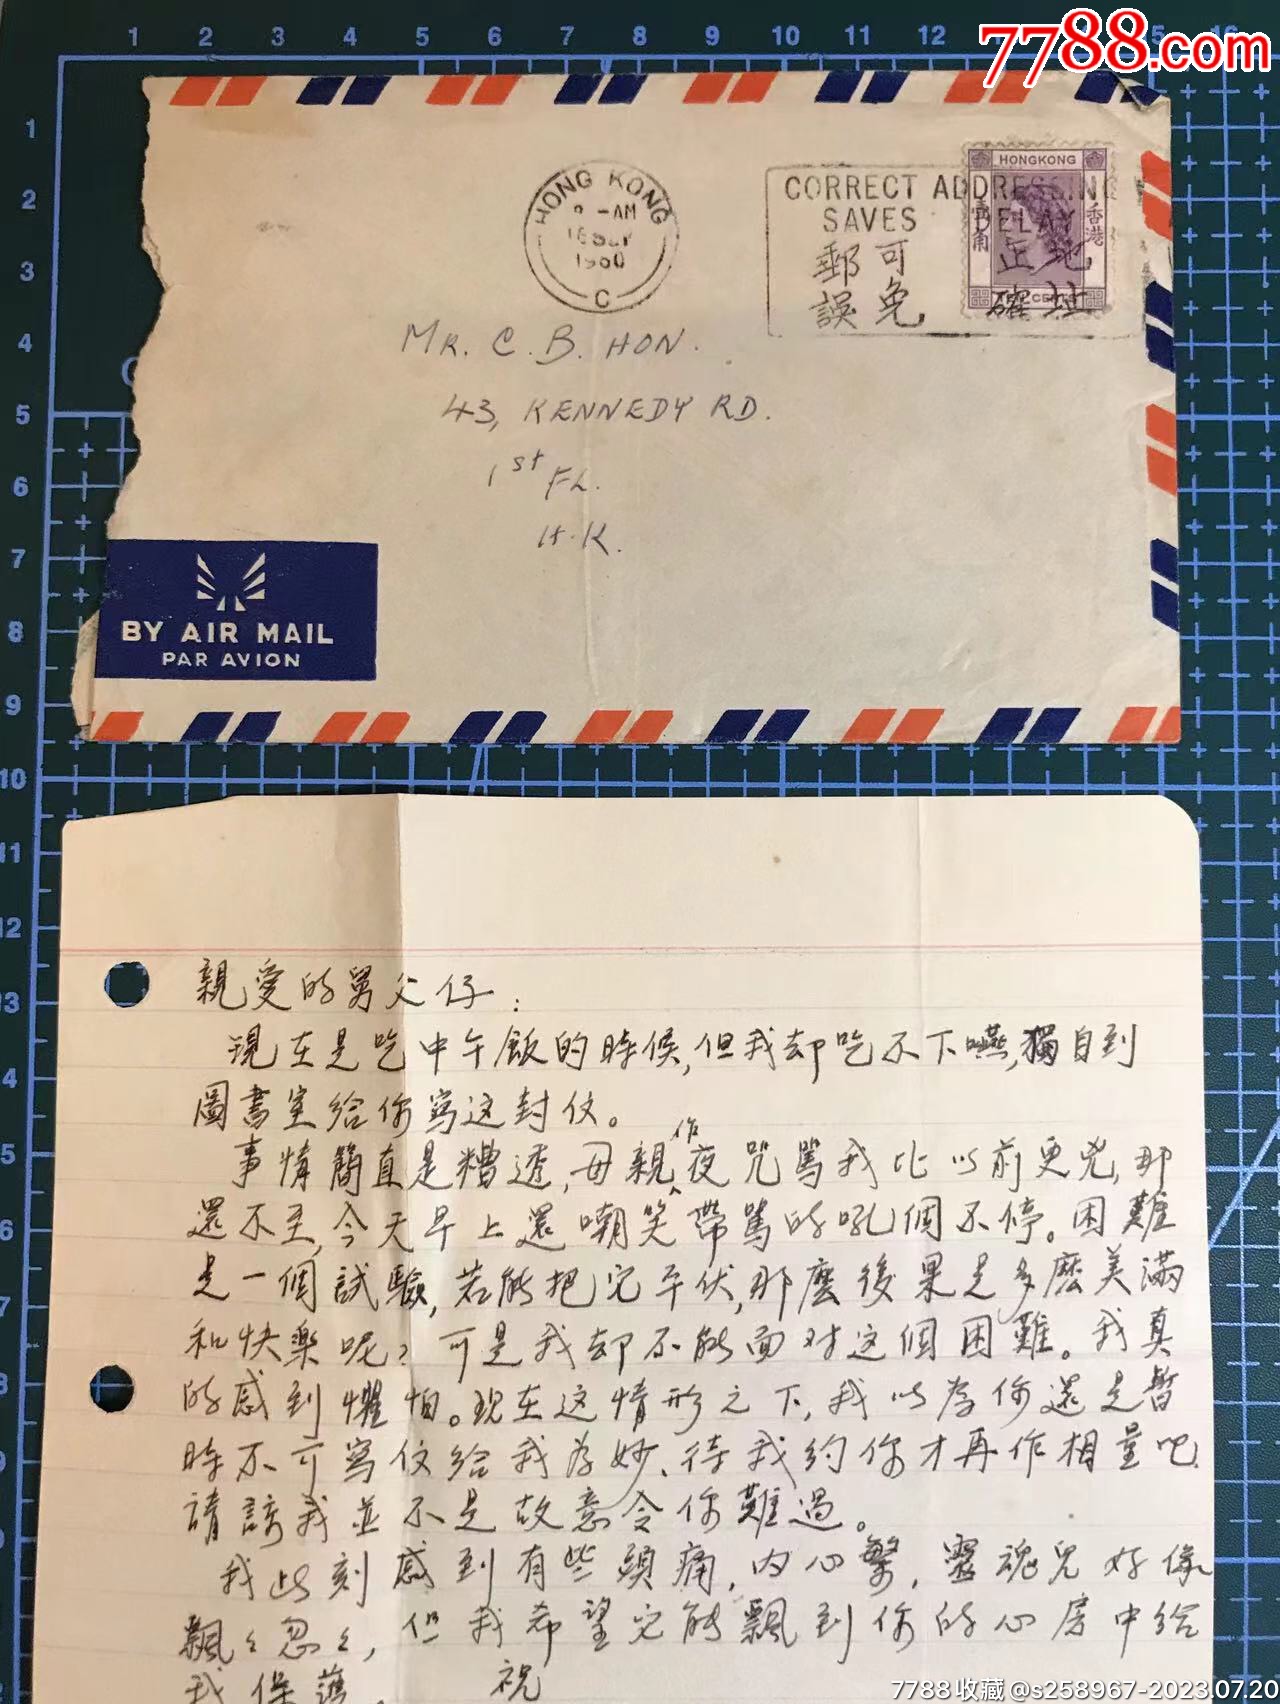 1 2 3 4 5 6 7 8 9 10 11 12 13
7788.com
1
2
3
4
5
6
7
8
9
10
11
12
HONG KONG
-AM
1960
C
CORRECT ADDRESSING
SAVES DELAY
郵可 正地
誤免 確址
HONGKONG
香港
TEN CENTS
MR. C. B. HON.
43, KENNEDY RD.
1st FL.
H.K.
BY AIR MAIL
PAR AVION
親愛的舅父仔:
現在是吃中午飯的時候,但我却吃不下嚥,獨自到
圖書室給你寫这封伩。
事情簡直是糟透,母親昨夜咒駡我比以前更兇,那
還不至,今天早上還嘲笑帶駡的吼個不停。困難
是一個試驗,若能把它平伏,那麽後果是多麽美滿
和快樂呢?可是我却不能面对这個困難。我真
的感到懼怕。現在这情形之下,我以為你還是暫
時不可寫伩給我為妙、待我約你才再作相量吧
請諒我並不是故意令你難過。
我此刻感到有些頭痛,内心繁,靈魂兒好像
飄々忽々,但我希望它能飄到你的心房中給
我保護。 祝
7788收藏@s258967-2023.07.20